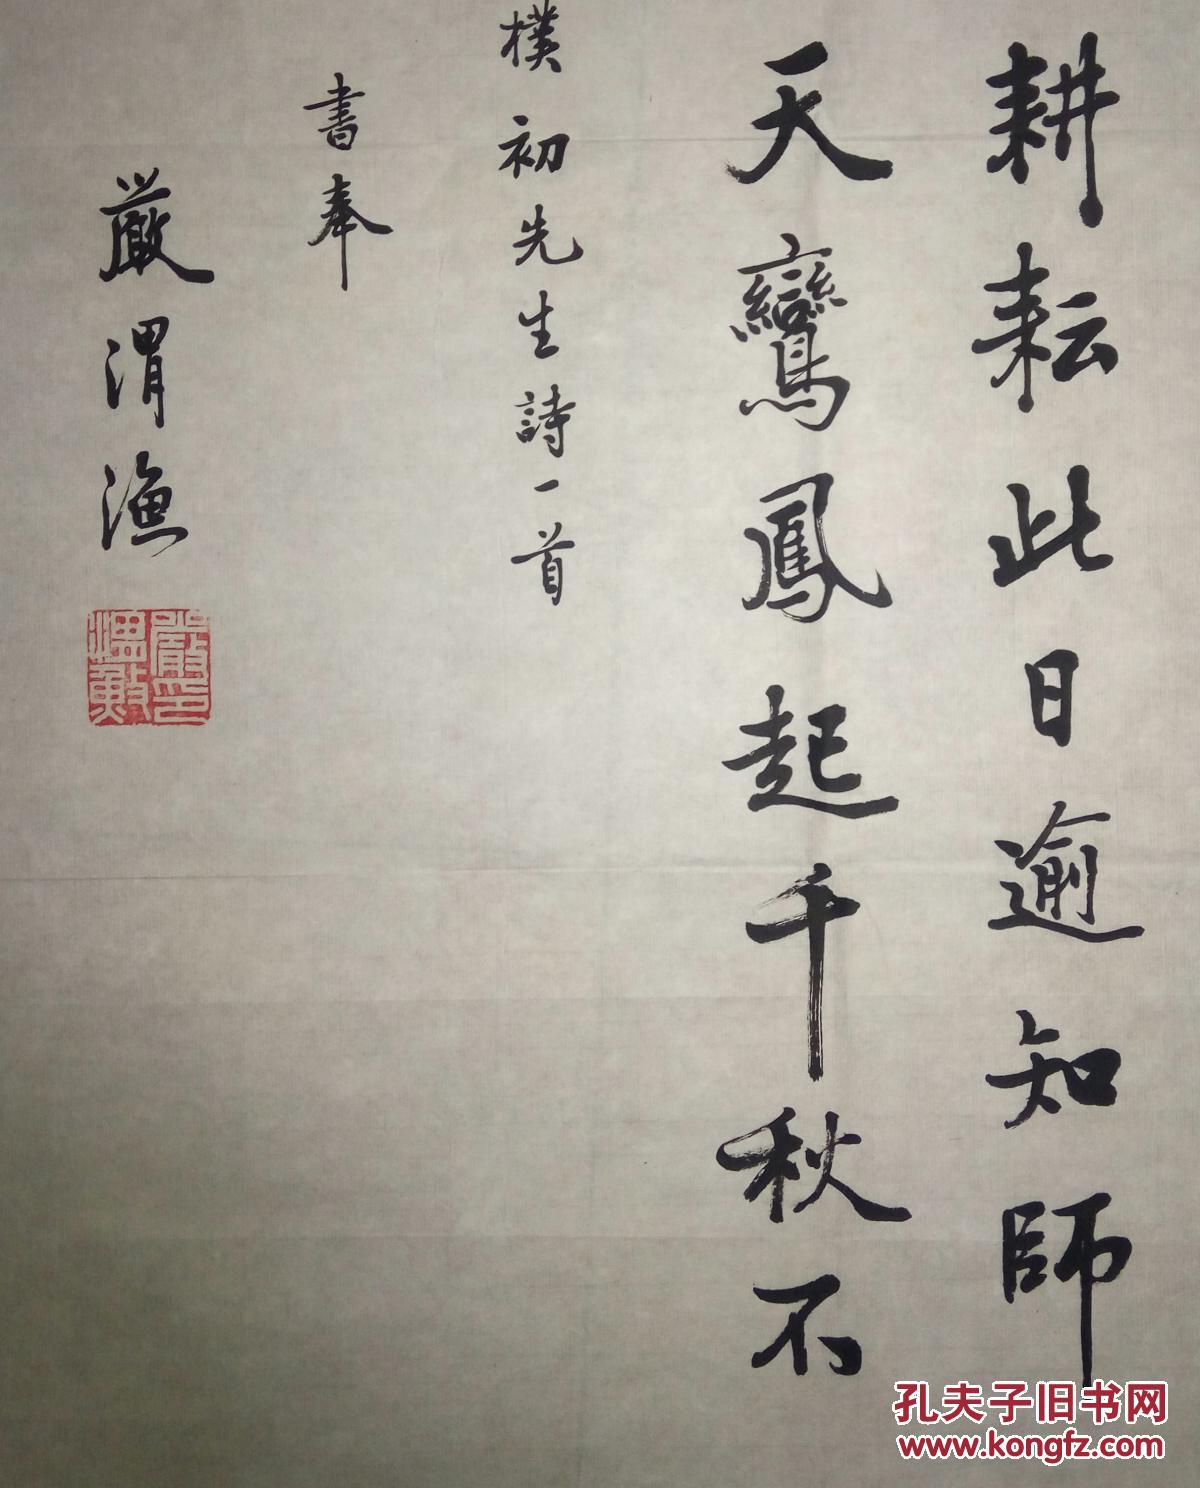 耕耘此日逾知師
天鸞鳳起千秋不
樸初先生詩一首
書奉
嚴渭漁
孔夫子旧书网
www.kongfz.com